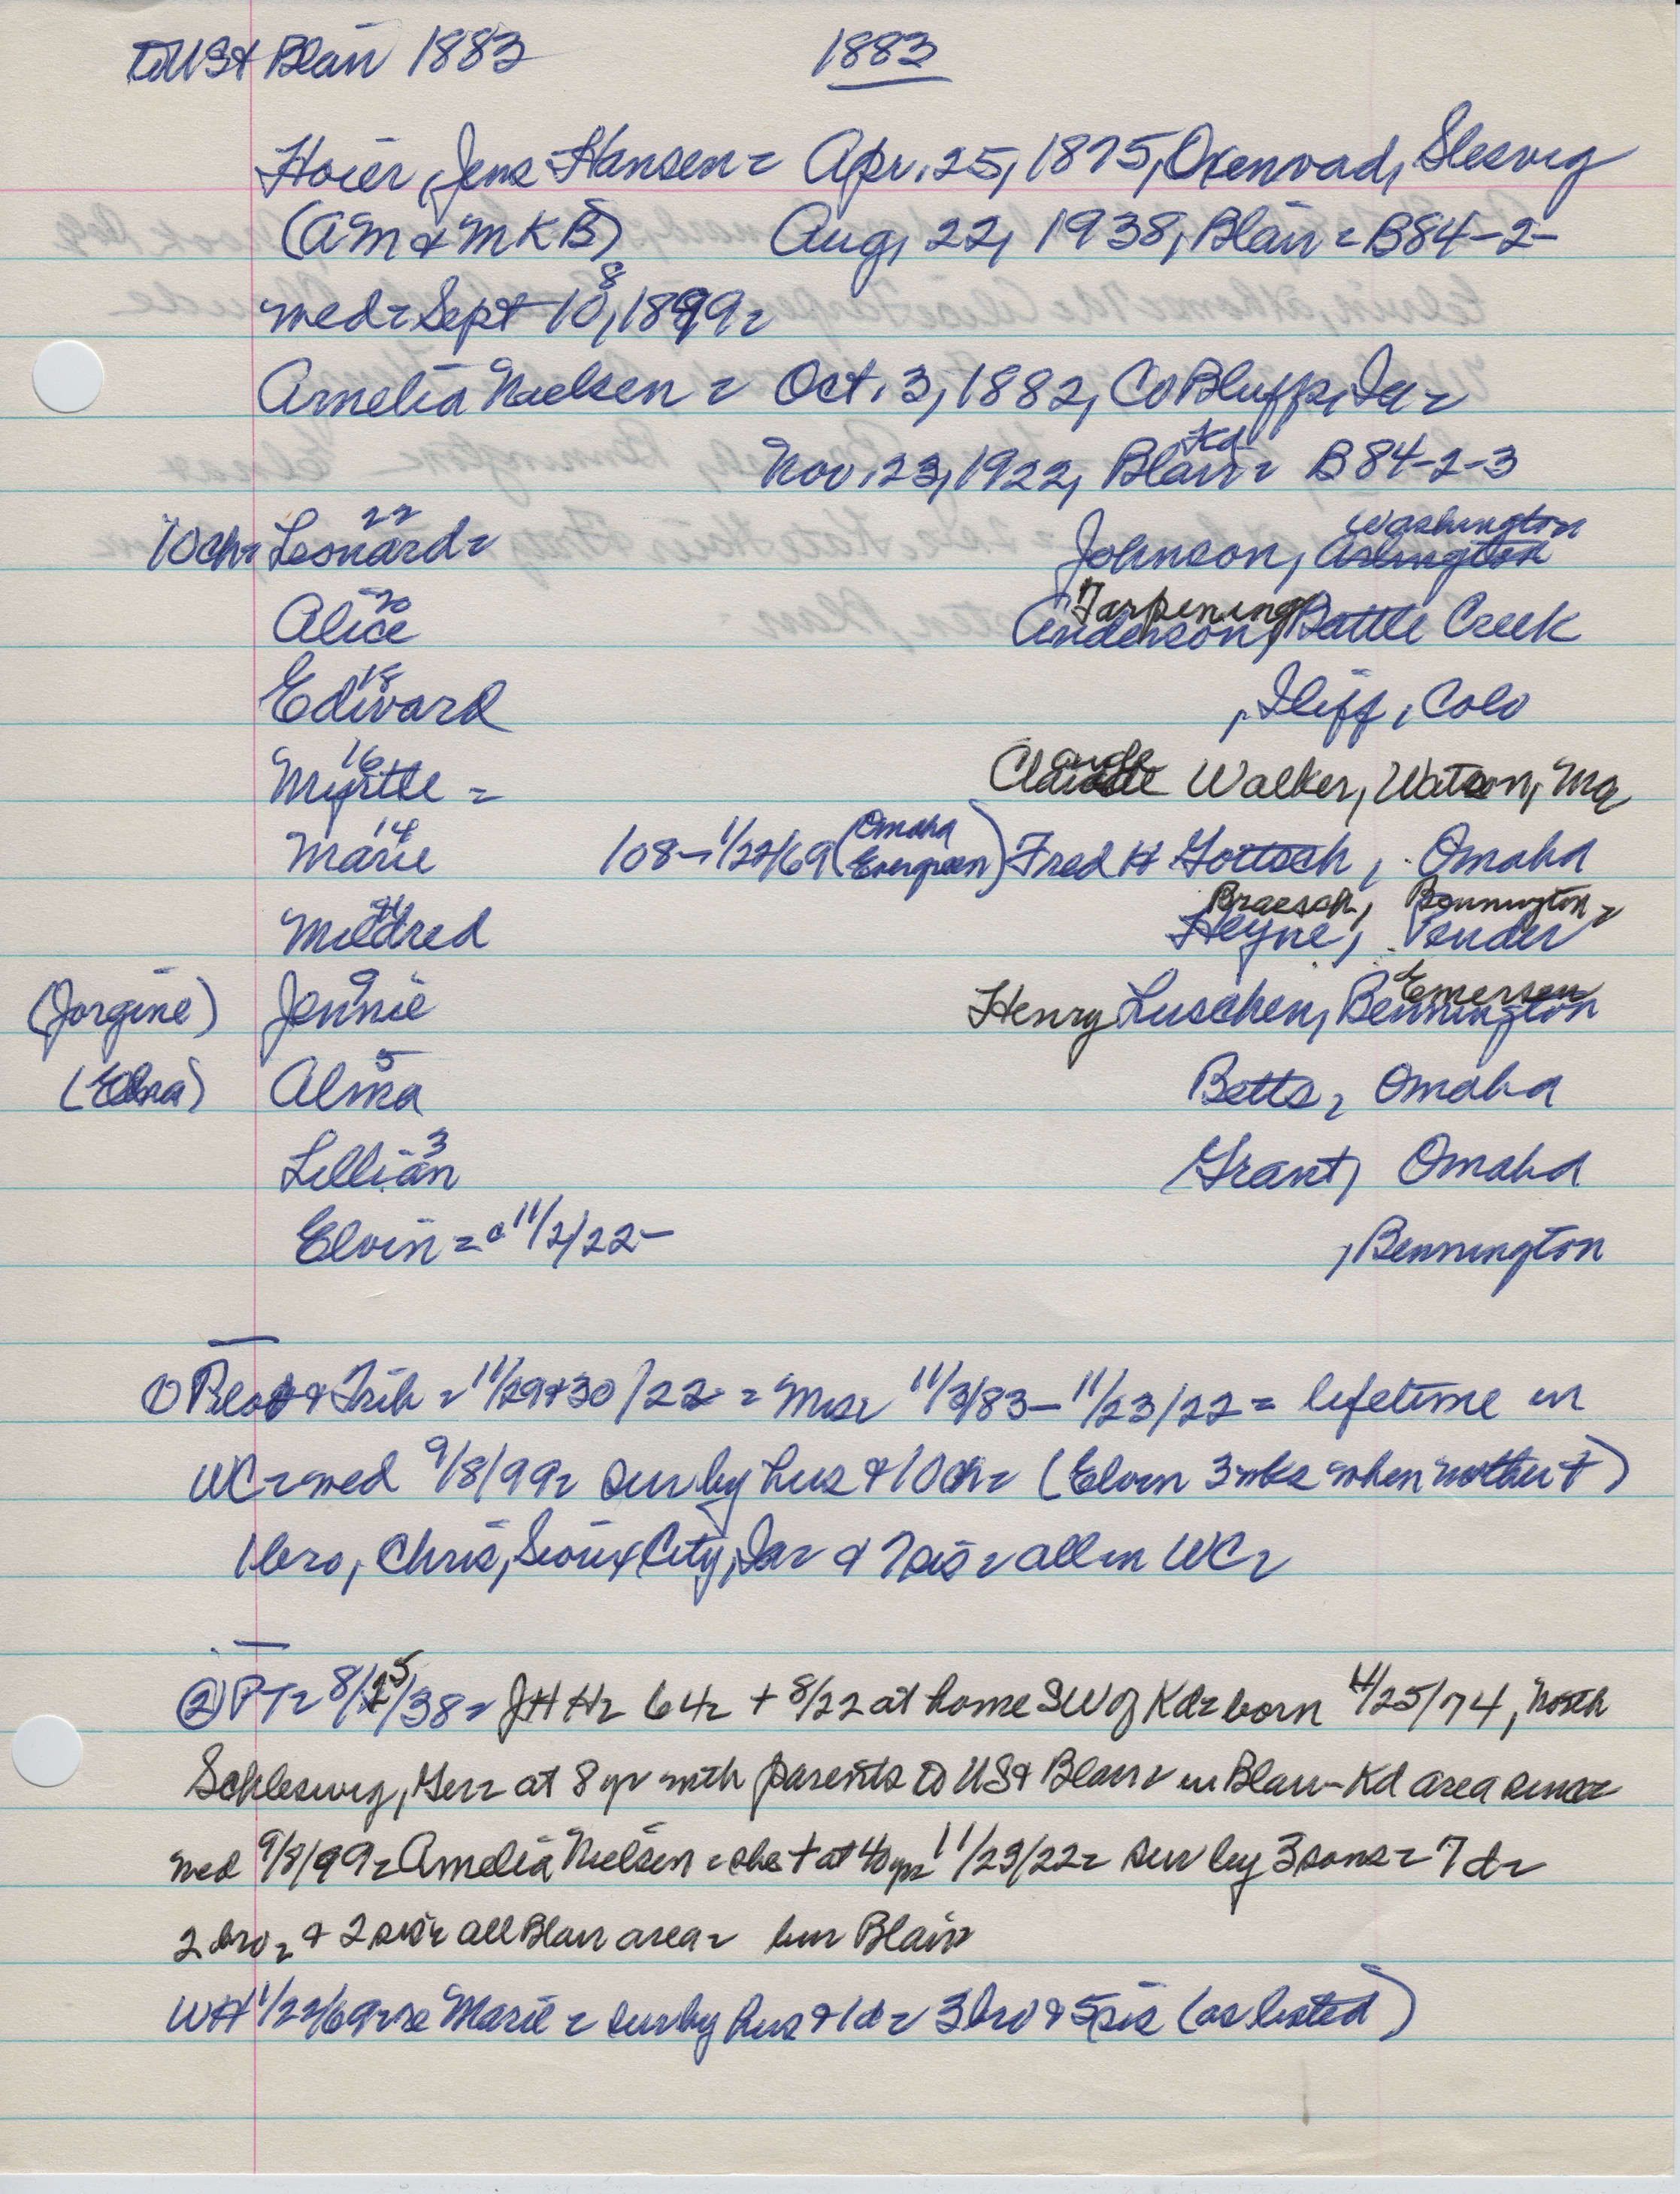 to US & Blair 1883 1883
Hoier, Jens Hansen = Apr. 25, 1875, Oxenvad, Slesvig
(AM & MKB) Aug, 22, 1938, Blair = B84-2-
med = Sept 10, 8 1899 =
Amelia Nielsen = Oct. 3, 1882, Co Bluffs, Ia =
Nov. 23, 1922, Blair = Kd B84-2-3
10 ch = Leonard = 22 Johnson, Arlington Washington
Alice 20 Anderson, Tarpening Battle Creek
Edward 18 , Iliff, Colo
Myrtle = 16 Claude Walker, Watson, Mo
Marie 14 108 - 11/22/69 (Omaha Evergreen) Fred H Gottsch, Omaha
Mildred Heyne, Pender Braesch, Bennington =
(Jorgine) Jennie 9 Henry Luschen, Bennington Emerson
(Edna) Alma 5 Betts, Omaha
Lillian 3 Grant, Omaha
Elvin = 11/2/22- , Bennington
① & Trib = 11/29 & 30/22 = Mrs = 11/3/83 - 11/23/22 = lifetime in
WC = med 9/8/99 = sur by hus & 10 ch = (Elvin 3 wks when mother +)
1 bro, Chris, Sioux City, Ia = & 7 sis = all in WC =
② PT = 8/25/38 = JHH = 64 = + 8/22 at home SW of Kd = born 4/25/74, North
Schleswig, Ger = at 8 yr with parents to US & Blair = in Blair-Kd area since
med 9/8/99 = Amelia Nielsen = she + at 40 yrs 11/23/22 = sur by 3 sons = 7 d =
2 bro = & 2 sis = all Blair area = bur Blair
WH 11/22/69 = re Marie = sur by hus & 1 d = 3 bro & 5 sis (as listed)